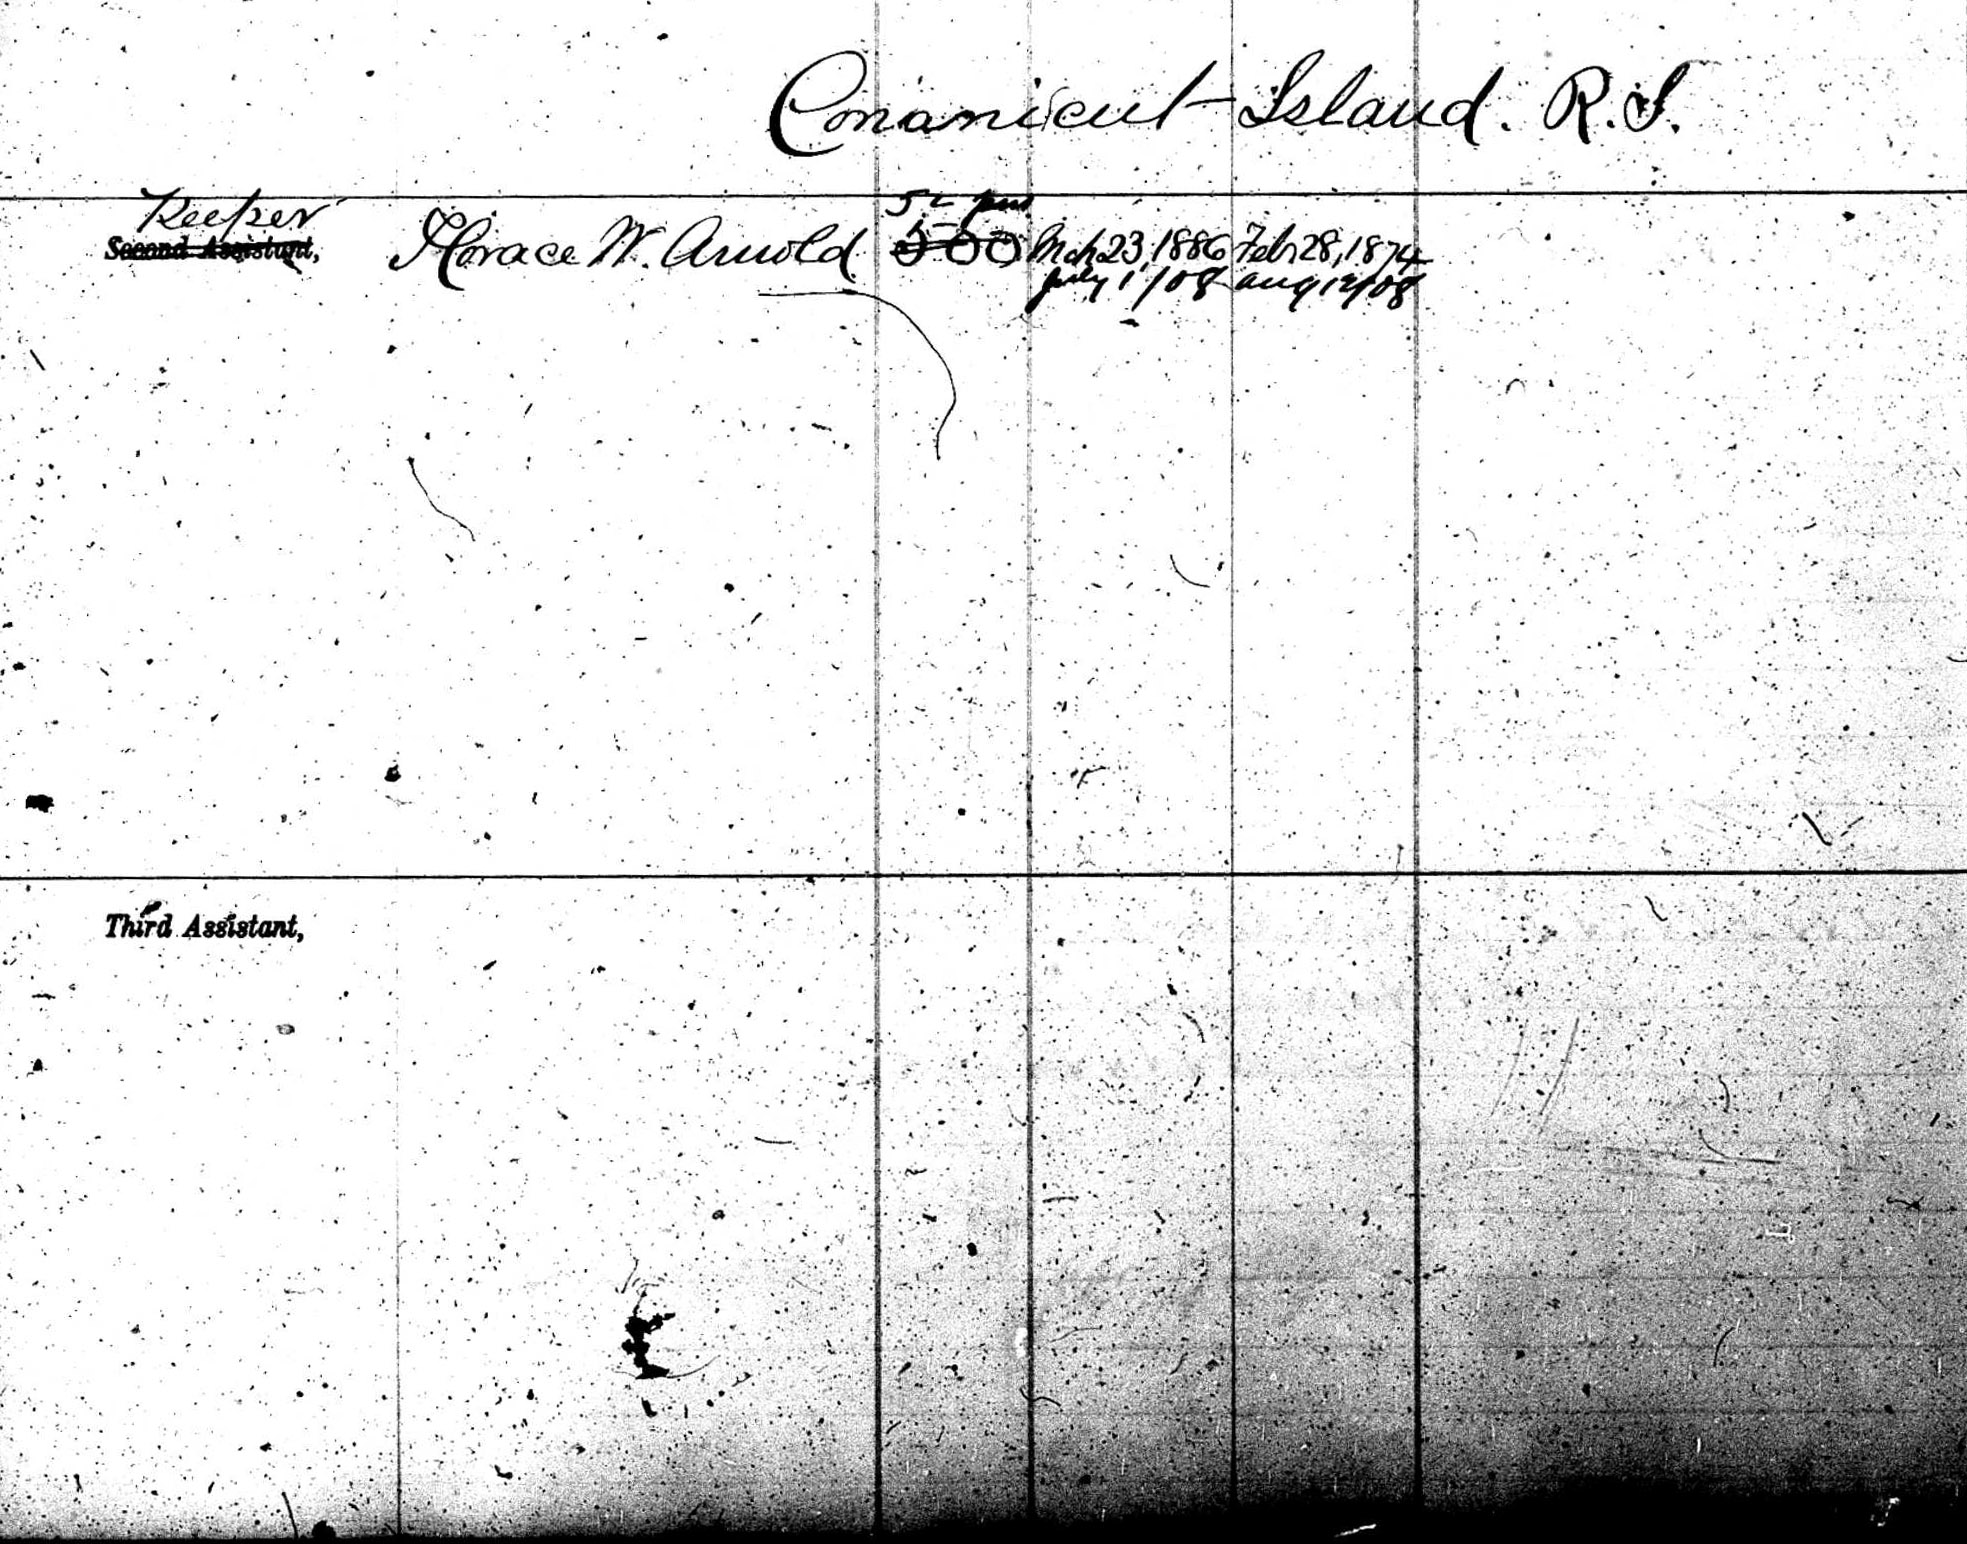 Conanicut Island. R.I.
Keeper
Second Assistant,
Horace W. Arnold 500 Mch 23, 1886 Feb 28, 1874
July 1/08 Aug 12/08
Third Assistant,